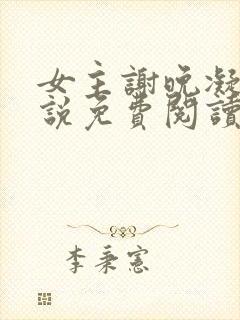 女主謝晚凝
說免費閱讀
李秉憲